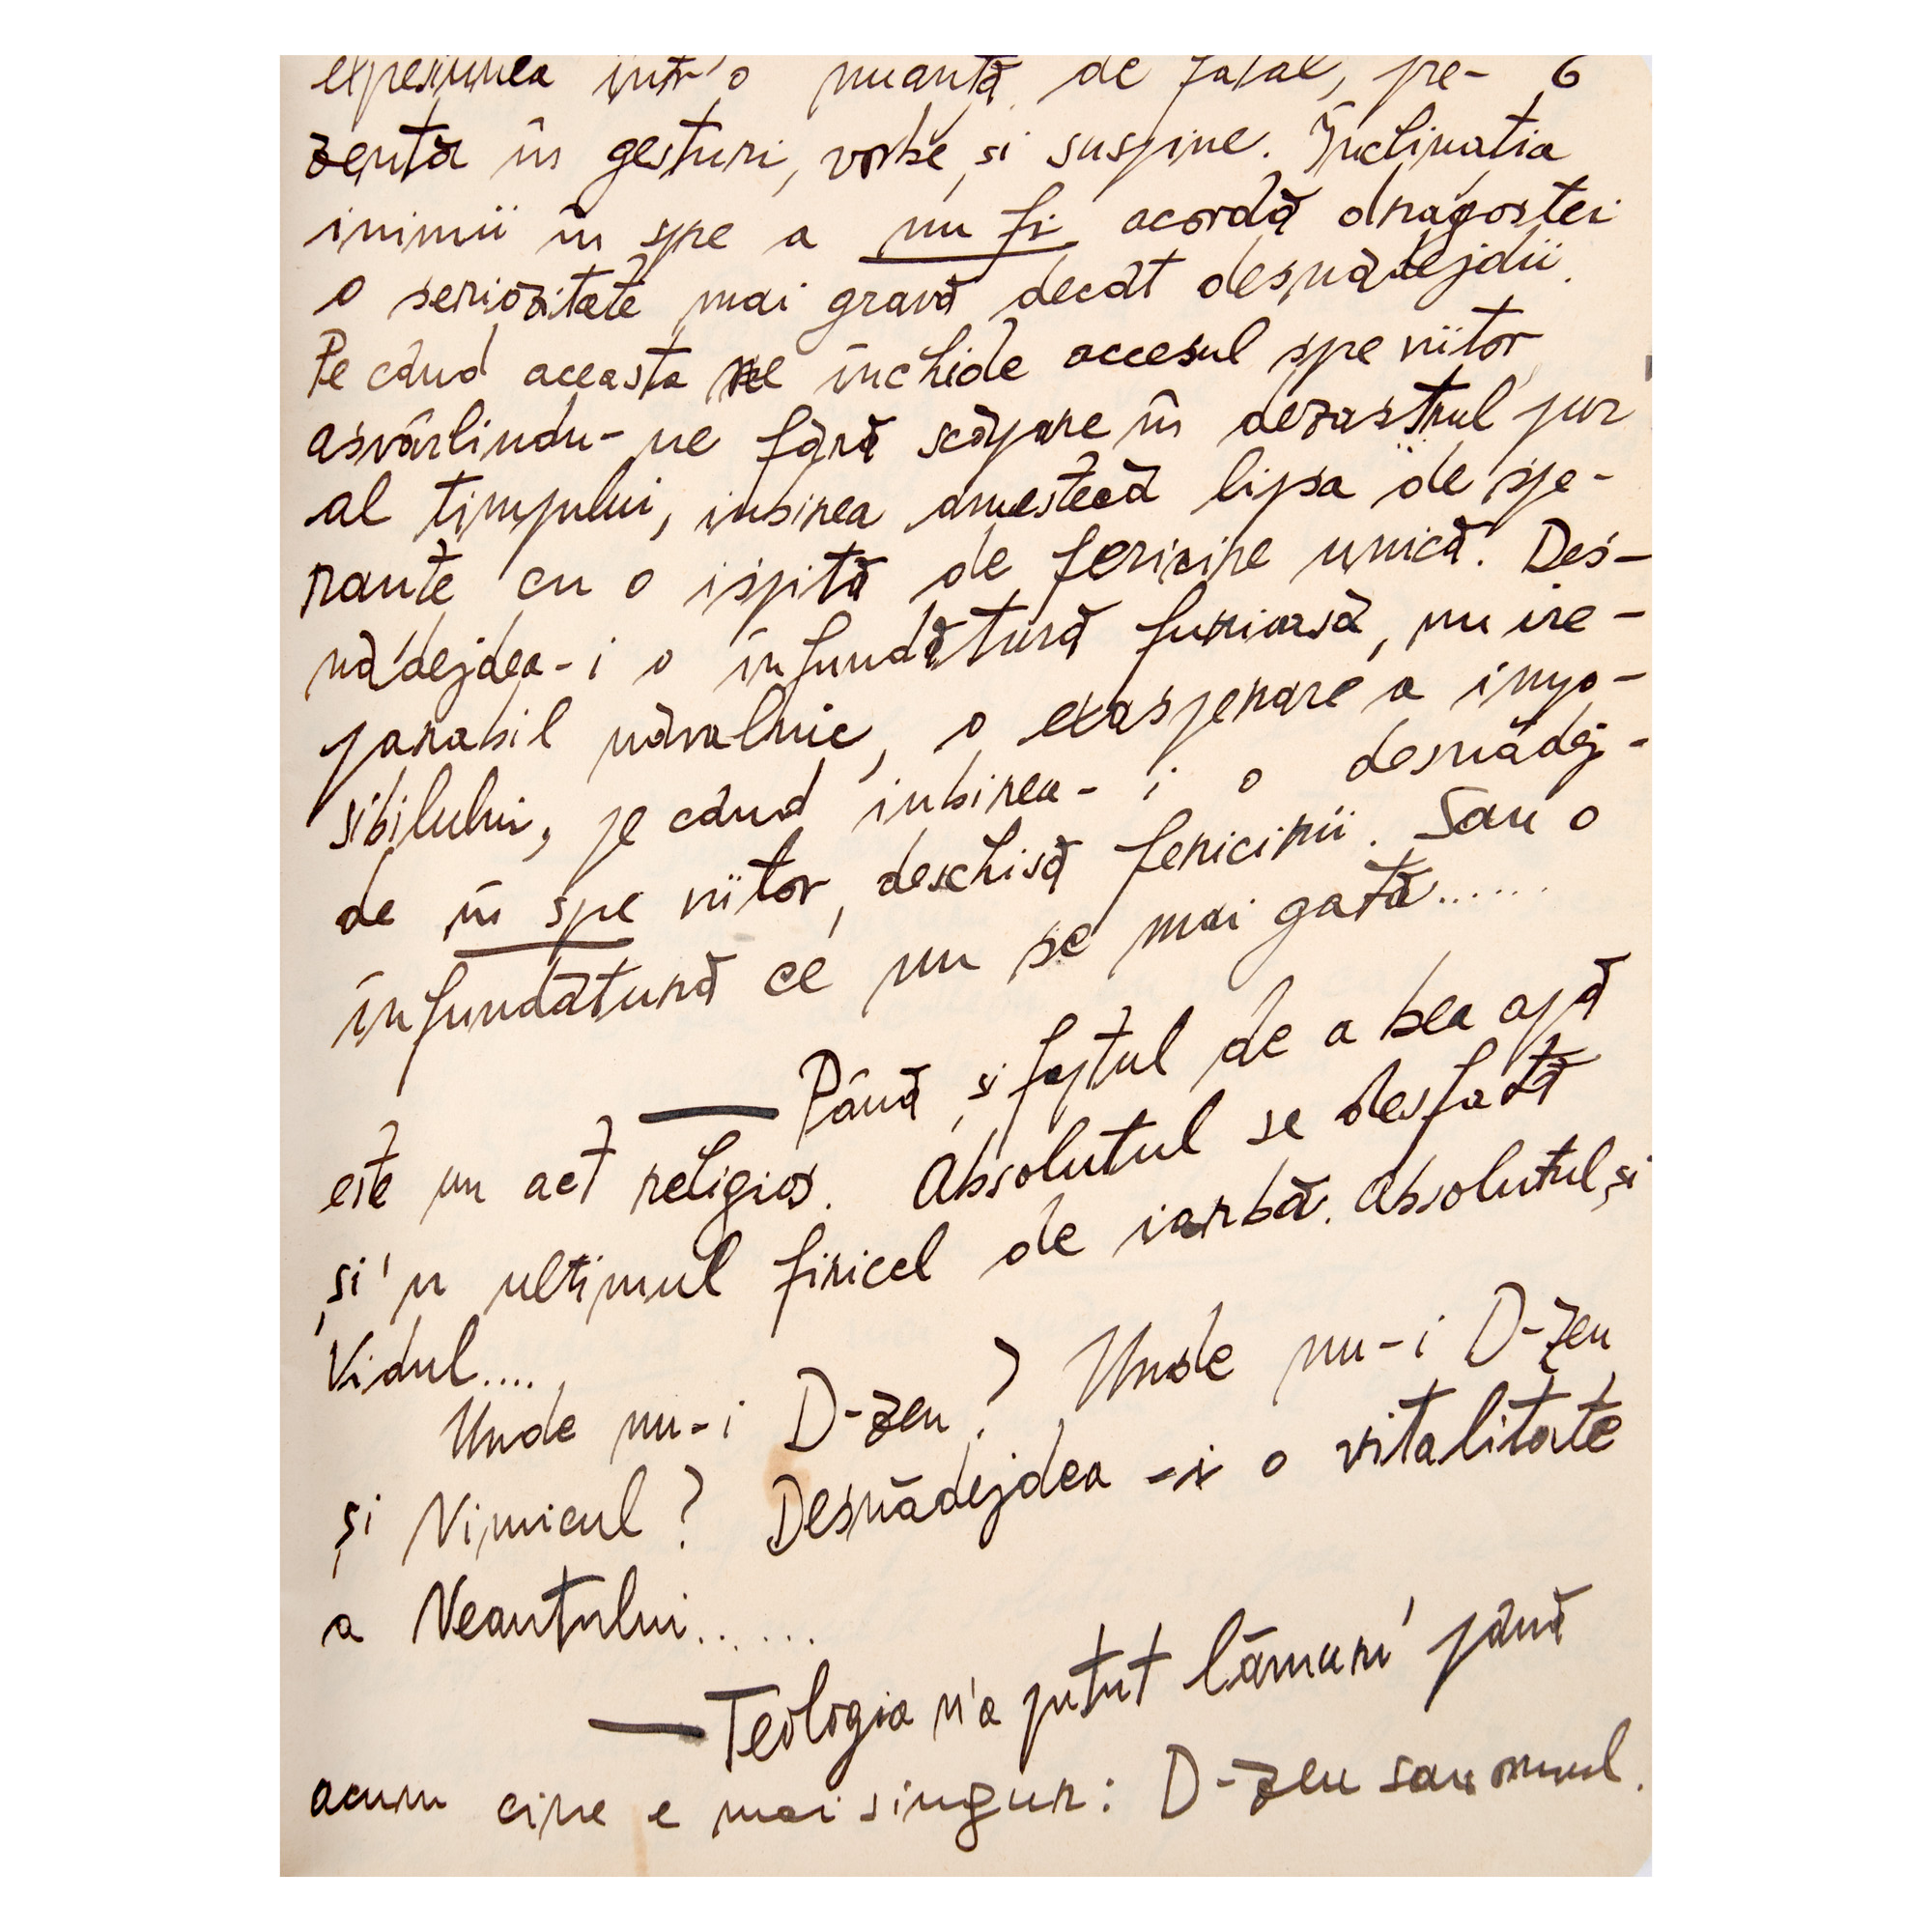 experierea într'o nuanță de fatal, pre- 6
zentă în gesturi, vorbe și suspine. Înclinatia
inimii în spre a nu fi acordă dragostei
o seriozitate mai gravă decât desnădejdii.
Pe când aceasta ne închide accesul spre viitor
asvârlindu-ne fără scăpare în dezastrul pur
al timpului, iubirea amestecă lipsa de spe-
ranțe cu o ispită de fericire unică. Des-
nădejdea-i o înfundătură furioasă, un ire-
parabil năvalnic, o exasperare a impo-
sibilului, pe când iubirea-i o desnădej-
de în spre viitor, deschisă fericirii. Sau o
înfundătură ce nu se mai gată......
— Până și faptul de a bea apă
este un act religios. Absolutul se desfată
și'n ultimul firicel de iarbă. Absolutul și
Vidul....
Unde nu-i D-zeu? Unde nu-i D-zeu
și Nimicul? Desnădejdea-i o vitalitate
a Neantului......
— Teologia n'a putut lămuri până
acum cine e mai singur: D-zeu sau omul.